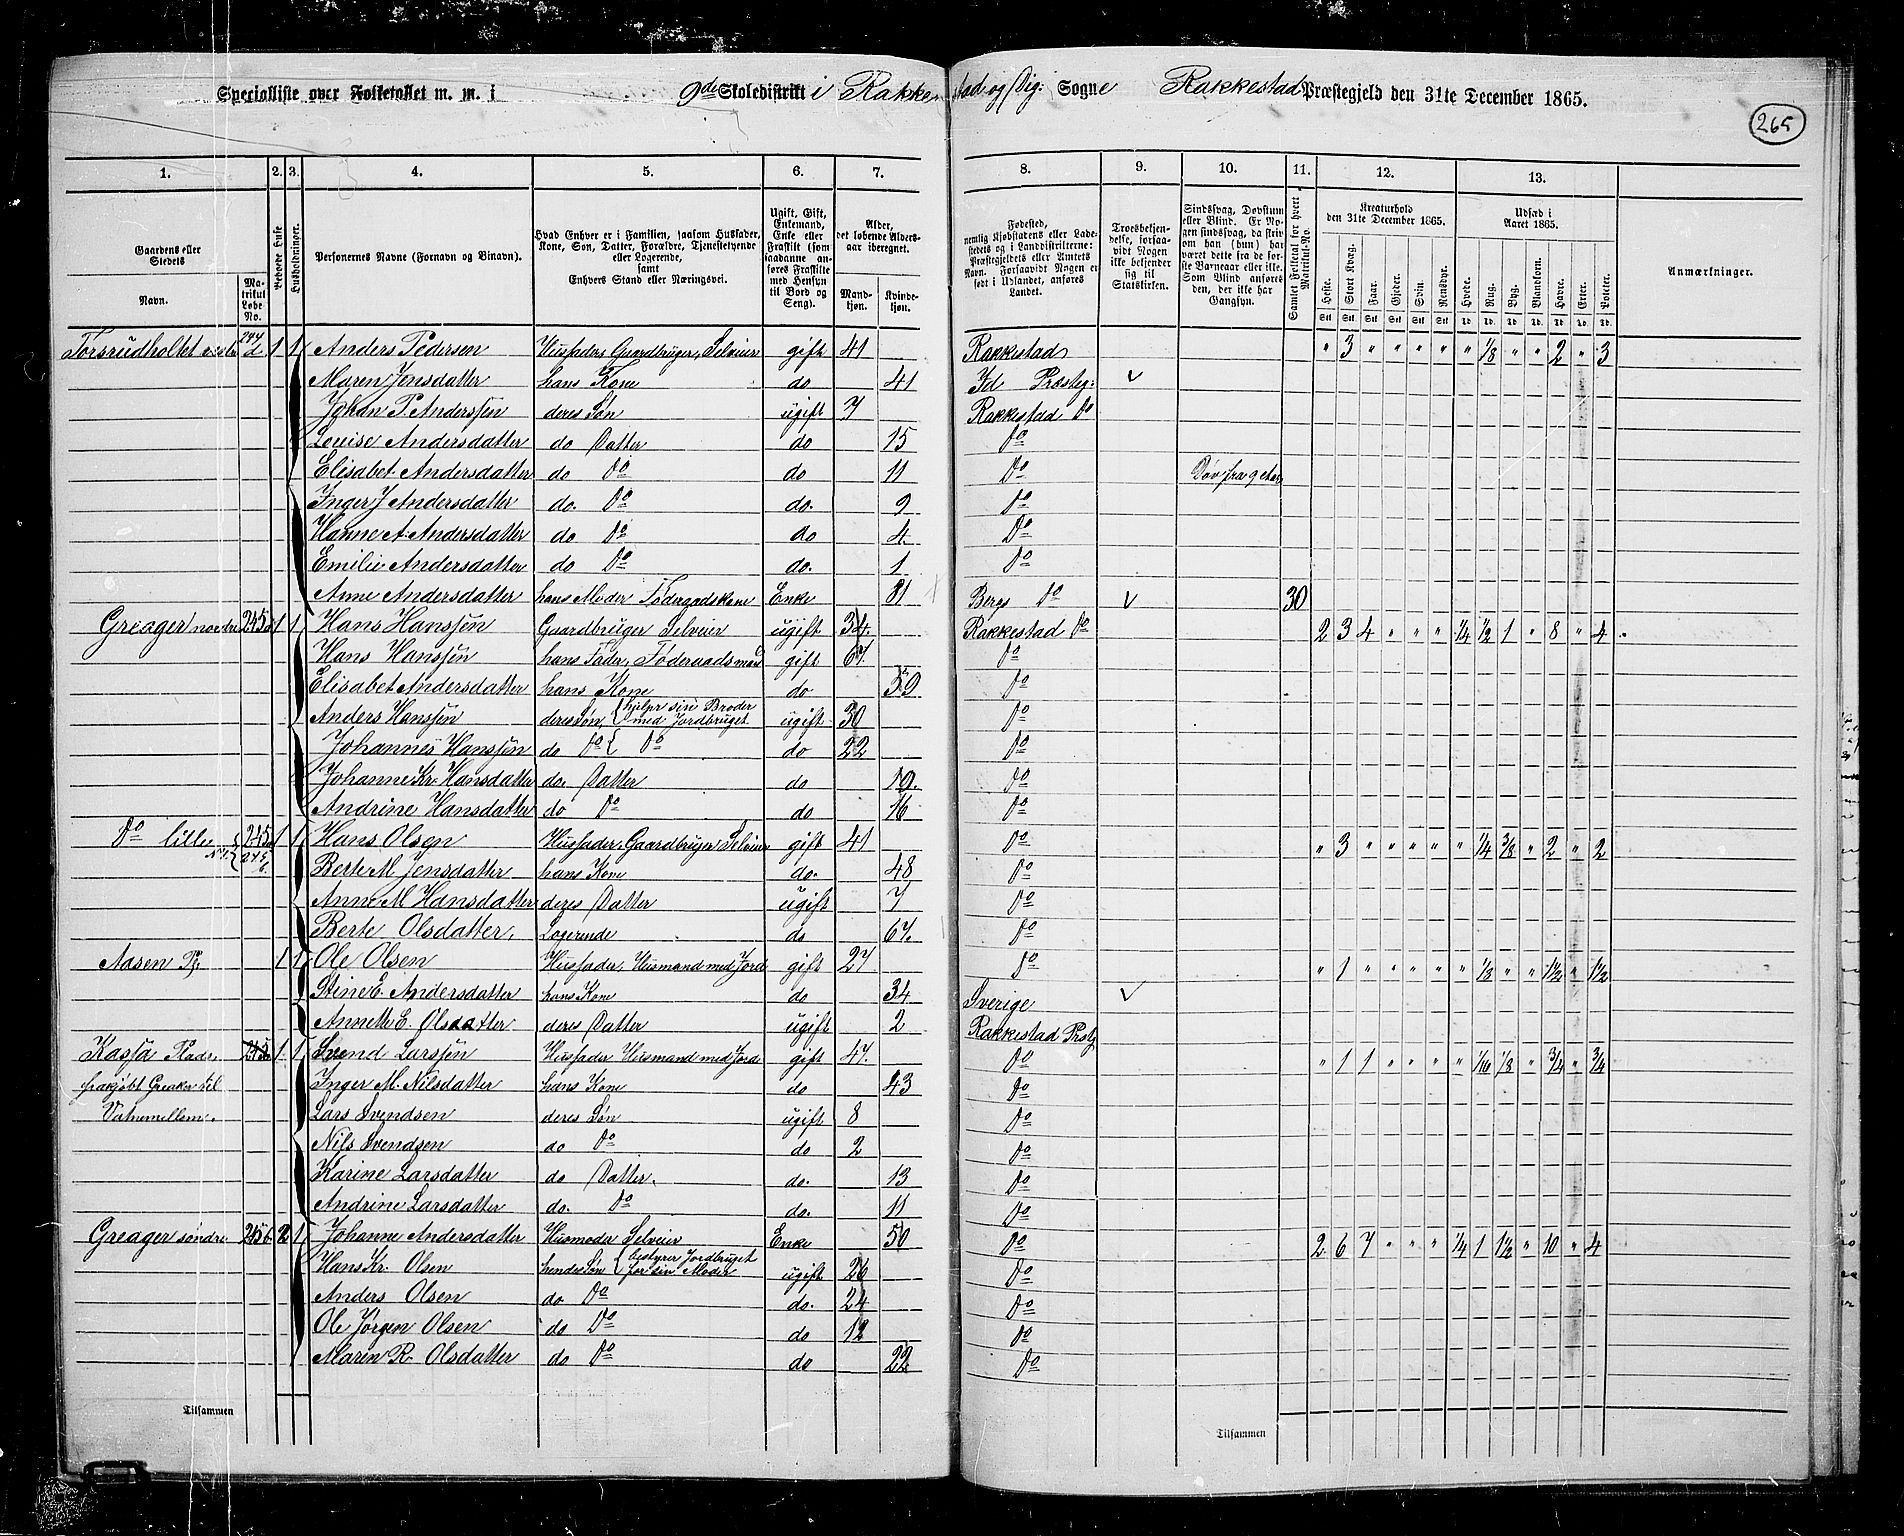 Specialliste over Folketallet m. m. i 9de Skoledistrikt i Rakkestad og Dig: Sogne Rakkestad Præstegjeld den 31te December 1865.
265
1. 2. 3. 4. 5. 6. 7. 8. 9. 10. 11. 12. 13.
Gaardens eller Stedets
Navn.
Matrikul Løbe No.
Beboede Huse
Husholdninger.
Personernes Navne (Fornavn og Binavn).
Hvad Enhver er i Familien, saasom Husfader, Kone, Søn, Datter, Forældre, Tjenestetyende eller Logerende, samt Enhvers Stand eller Næringsvei.
Ugift, Gift, Enkemand, Enke eller Fraskilt (som saadanne anføres Fraskilte med Hensyn til Bord og Seng).
Alder, det løbende Alders-aar iberegnet.
Mandkjøn. Kvindekjøn.
Fødested, nemlig Kjøbstadens eller Ladestedets og i Landdistrikterne: Præstegjeldets eller Amtets Navn. Forsaavidt Nogen er født i Udlandet, anføres Landet.
Troesbekjendelse, forsaavidt Nogen ikke bekjender sig til Statskirken.
Sindssvag, Døvstum eller Blind. Er Nogen sindssvag, da skriv om han (hun) har været dette fra de første Barneaar eller ikke. Som Blind anføres den, der ikke har Gangsyn.
Samlet Folketal for hvert Matrikul-No.
Kreaturhold den 31te December 1865.
Heste. Stort Kvæg. Faar. Gjeder. Svin. Rensdyr.
Udsæd i Aaret 1865.
Hvede. Rug. Byg. Blandkorn. Havre. Erter. Poteter.
Anmærkninger.
Torsrudholtet 244 d 1 1 Anders Pedersen Husfader, Gaardbruger, Selveier gift 41 Rakkestad " 3 " " " " " 1/8 " " 2 " 3
Maren Jensdatter hans Kone do 41 Id Præsteg:
Johan P. Anderssen deres Søn ugift 7 Rakkestad Do
Louise Andersdatter do Datter do 15 Do
Elisabet Andersdatter do Do do 11 Do
Inger J Andersdatter do. Do do. 9 Do
Hanne A. Andersdatter do Do do 4 Do
Emilie Andersdatter do Do do. 1 Do
Anne Andersdatter hans Moder Føderaadskone Enke 81 Bergs Do 30
Greager nordre 245a 1 1 Hans Hanssen Gaardbruger Selveier ugift 34 Rakkestad Do 2 3 4 " " " 1/4 1/2 1 " 8 " 4
Hans Hanssen hans Fader, Føderaadsmand gift 67 Do
Elisabet Andersdatter hans Kone do 59 Do
Anders Hanssen deres Søn, hjelper sin Broder med Jordbruget ugift 30 Do
Johannes Hanssen do Do Do do 22 Do
Johanne Kr. Hansdatter do. Datter do 19. Do
Andrine Hansdatter do Do do 16 Do
Do lille 245 245 1 1 Hans Olsen Husfader, Gaardbruger Selveier gift 41 Do " 3 " " " " " 1/4 3/8 " 2 " 2
Berte M Jensdatter hans Kone do. 48 Do
Anne M Hansdatter deres Datter ugift 7 Do
Berte Olsdatter, Logerende do 67. Do
Aasen Pl. 1 1 Ole Olsen Husfader, Husmand med Jord gift 27 Do " 1 " " " " " 1/8 " " 1 1/2 " 1 1/2
Stine E. Andersdatter hans Kone do 34 Sverige
Annette E. Olsdatter deres Datter ugift 2 Rakkestad Prstg
Kassa Plads, 245 1 1 Svend Larssen Husfader Husmand med Jord gift 47. Do " 1 1 " " " " 1/16 1/8 " 3/4 " 3/4
frakjøbt Greaker til Inger M. Nilsdatter hans Kone do 43 Do
Vatnemellem. Lars Svendsen deres Søn ugift 8 Do
Nils Svendsen do Do do 2 Do
Karine Larsdatter do Datter. do. 13 Do
Andrine Larsdatter do. Do do. 11 Do
Greager søndre 245 b 2 1 Johanne Andersdatter Husmoder Selveier Enke 50 Do 2 6 7 " " " 1/4 1 1 1/2 " 10 " 4
Hans Kr. Olsen hendes Søn bestyrer Jordbruget for sin Moder ugift 26 Do
Anders Olsen do Do do. 24 Do
Ole Jørgen Olsen do Do do 12 Do
Maren R. Olsdatter do Do do 22 Do
Tilsammen
Tilsammen